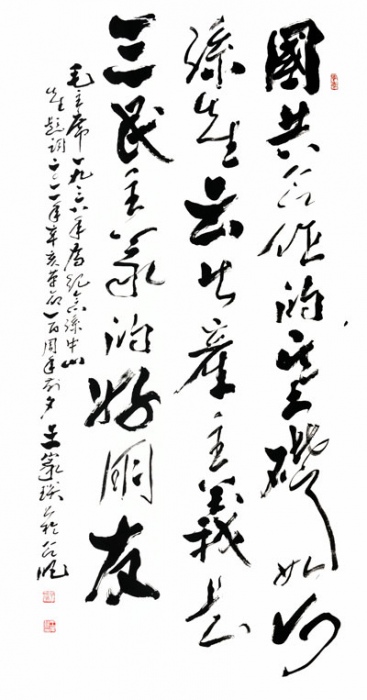 國共合作的基礎如何
孫先生云共產主義是
三民主義的好朋友
毛主席一九三八年為紀念孫中山
先生題詞二〇一一年辛亥革命一百周年前夕